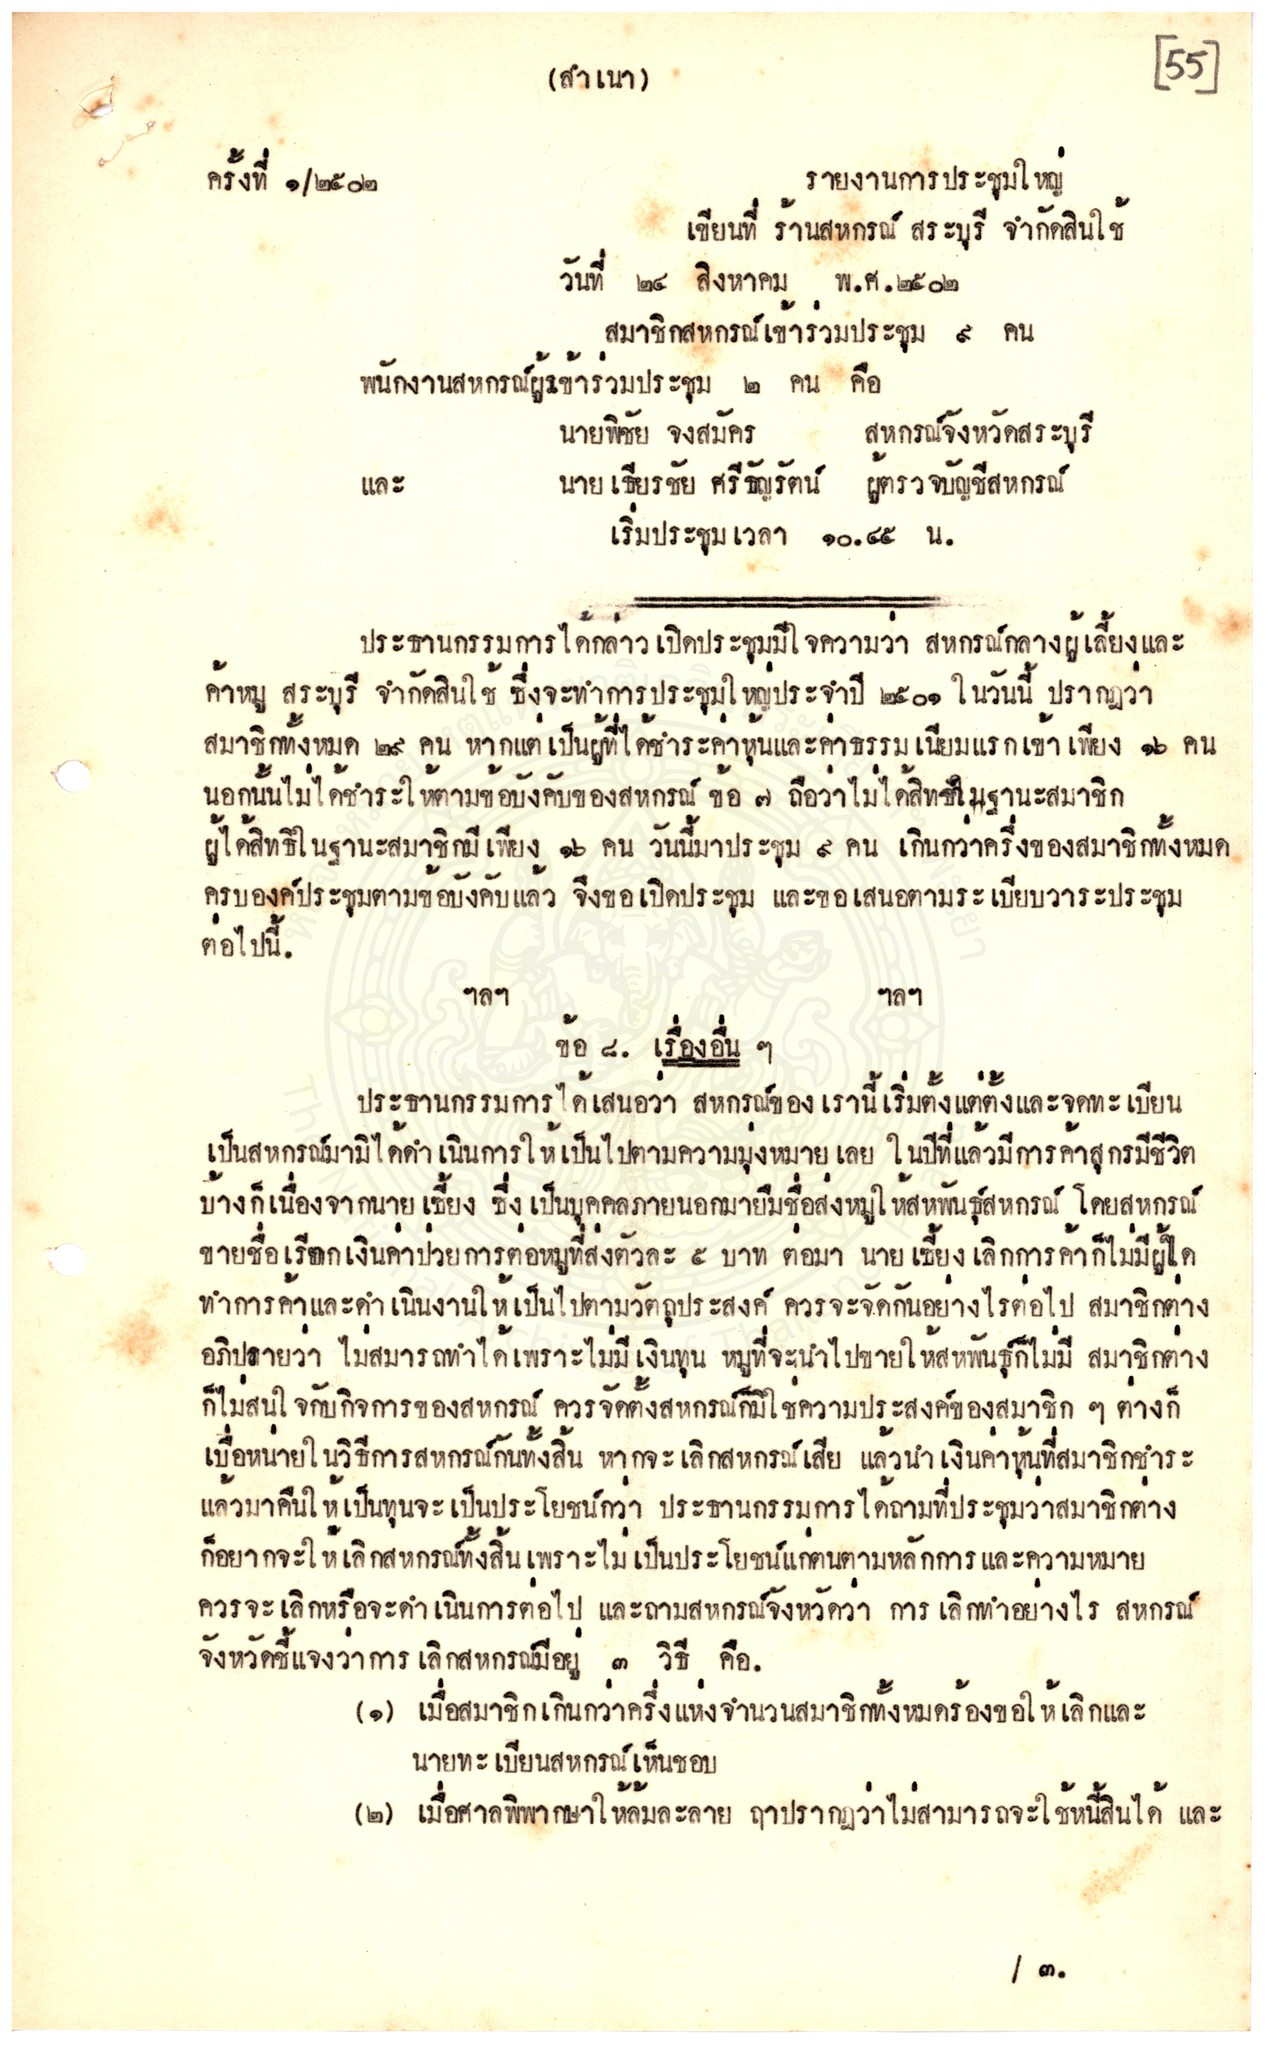 [55]
(สำเนา)
ครั้งที่ ๑/๒๕๐๒ รายงานการประชุมใหญ่
เขียนที่ ร้านสหกรณ์ สระบุรี จำกัดสินใช้
วันที่ ๒๔ สิงหาคม พ.ศ.๒๕๐๒
สมาชิกสหกรณ์เข้าร่วมประชุม ๙ คน
พนักงานสหกรณ์ผู้เข้าร่วมประชุม ๒ คน คือ
นายพิชัย จงสมัคร สหกรณ์จังหวัดสระบุรี
และ นายเธียรชัย ศรีธัญรัตน์ ผู้ตรวจบัญชีสหกรณ์
เริ่มประชุมเวลา ๑๐.๔๕ น.
ประธานกรรมการได้กล่าวเปิดประชุมมีใจความว่า สหกรณ์กลางผู้เลี้ยงและ
ค้าหมู สระบุรี จำกัดสินใช้ ซึ่งจะทำการประชุมใหญ่ประจำปี ๒๕๐๑ ในวันนี้ ปรากฏว่า
สมาชิกทั้งหมด ๒๙ คน หากแต่เป็นผู้ที่ได้ชำระค่าหุ้นและค่าธรรมเนียมแรกเข้าเพียง ๑๖ คน
นอกนั้นไม่ได้ชำระให้ตามข้อบังคับของสหกรณ์ ข้อ ๗ ถือว่าไม่ได้สิทธิในฐานะสมาชิก
ผู้ได้สิทธิในฐานะสมาชิกมีเพียง ๑๖ คน วันนี้มาประชุม ๙ คน เกินกว่าครึ่งของสมาชิกทั้งหมด
ครบองค์ประชุมตามข้อบังคับแล้ว จึงขอเปิดประชุม และขอเสนอตามระเบียบวาระประชุม
ต่อไปนี้.
ฯลฯ ฯลฯ
ข้อ ๘. เรื่องอื่น ๆ
ประธานกรรมการได้เสนอว่า สหกรณ์ของเรานี้เริ่มตั้งแต่ตั้งและจดทะเบียน
เป็นสหกรณ์มามิได้ดำเนินการให้เป็นไปตามความมุ่งหมายเลย ในปีที่แล้วมีการค้าสุกรมีชีวิต
บ้างก็เนื่องจากนายเซี้ยง ซึ่งเป็นบุคคลภายนอกมายืมชื่อส่งหมูให้สหพันธุ์สหกรณ์ โดยสหกรณ์
ขายชื่อเรียกเงินค่าป่วยการต่อหมูที่ส่งตัวละ ๕ บาท ต่อมา นายเซี้ยงเลิกการค้าก็ไม่มีผู้ใด
ทำการค้าและดำเนินงานให้เป็นไปตามวัตถุประสงค์ ควรจะจัดกันอย่างไรต่อไป สมาชิกต่าง
อภิปรายว่า ไม่สมารถทำได้เพราะไม่มีเงินทุน หมูที่จะนำไปขายให้สหพันธุ์ก็ไม่มี สมาชิกต่าง
ก็ไม่สนใจกับกิจการของสหกรณ์ ควรจัดตั้งสหกรณ์ก็มิใช่ความประสงค์ของสมาชิก ๆ ต่างก็
เบื่อหน่ายในวิธีการสหกรณ์กันทั้งสิ้น หากจะเลิกสหกรณ์เสีย แล้วนำเงินค่าหุ้นที่สมาชิกชำระ
แล้วมาคืนให้เป็นทุนจะเป็นประโยชน์กว่า ประธานกรรมการได้ถามที่ประชุมว่าสมาชิกต่าง
ก็อยากจะให้เลิกสหกรณ์ทั้งสิ้นเพราะไม่เป็นประโยชน์แก่ตนตามหลักการและความหมาย
ควรจะเลิกหรือจะดำเนินการต่อไป และถามสหกรณ์จังหวัดว่า การเลิกทำอย่างไร สหกรณ์
จังหวัดชี้แจงว่าการเลิกสหกรณ์มีอยู่ ๓ วิธี คือ.
(๑) เมื่อสมาชิกเกินกว่าครึ่งแห่งจำนวนสมาชิกทั้งหมดร้องขอให้เลิกและ
นายทะเบียนสหกรณ์เห็นชอบ
(๒) เมื่อศาลพิพากษาให้ล้มละลาย ถาปรากฏว่าไม่สามารถจะใช้หนี้สินได้ และ
/ ๓.